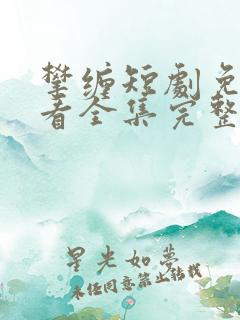 攀缠短劇免
看全集完整
星光如夢
未经同意禁止转载